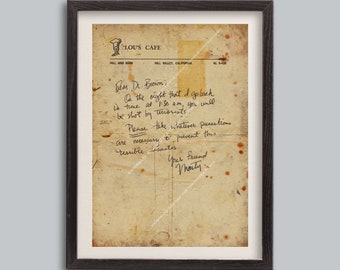 LOU'S CAFE
HILL VALLEY, CALIFORNIA
Dear Dr. Brown,
On the night that I go back
in time at 1:30 am, you will
be shot by terrorists.
Please take whatever precautions
are necessary to prevent this
terrible disaster.
Your Friend
Marty